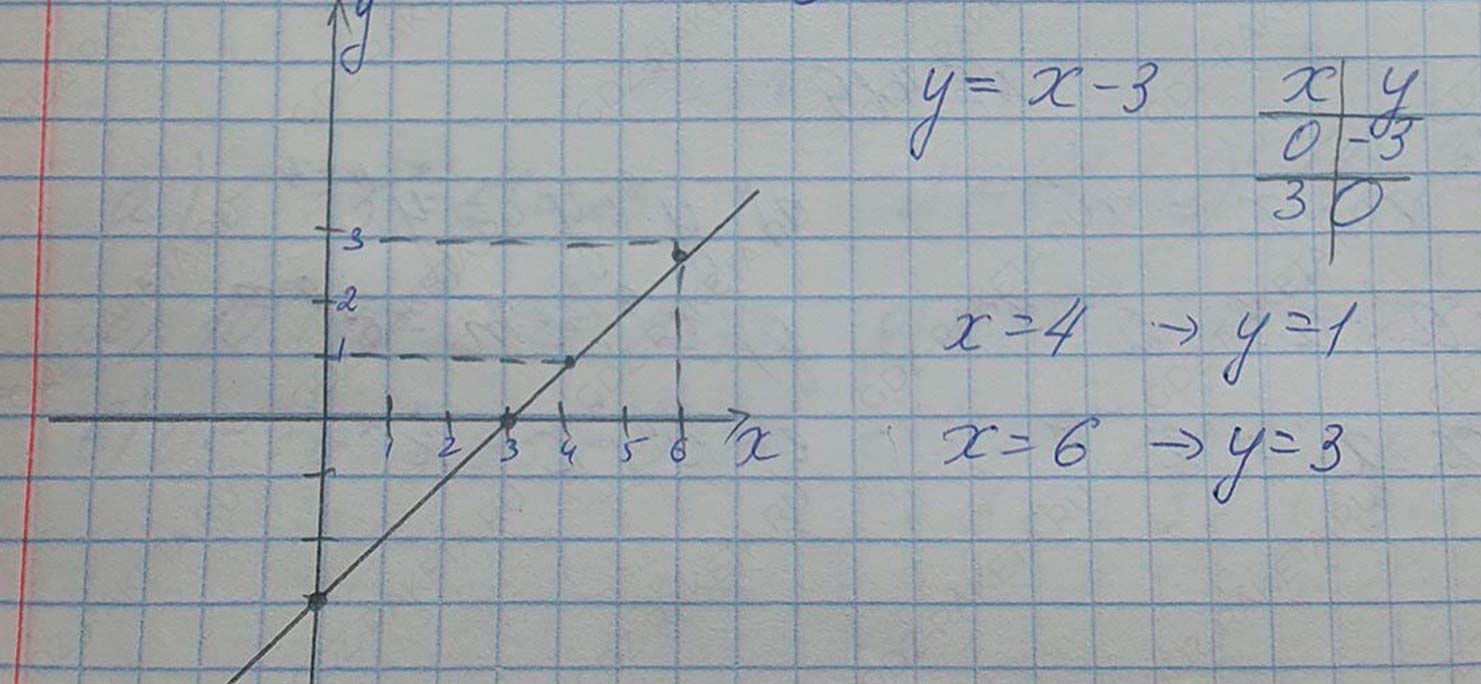 y
y = x - 3
x y
0 -3
3 0
3
2
1
1 2 3 4 5 6 x
x = 4 → y = 1
x = 6 → y = 3